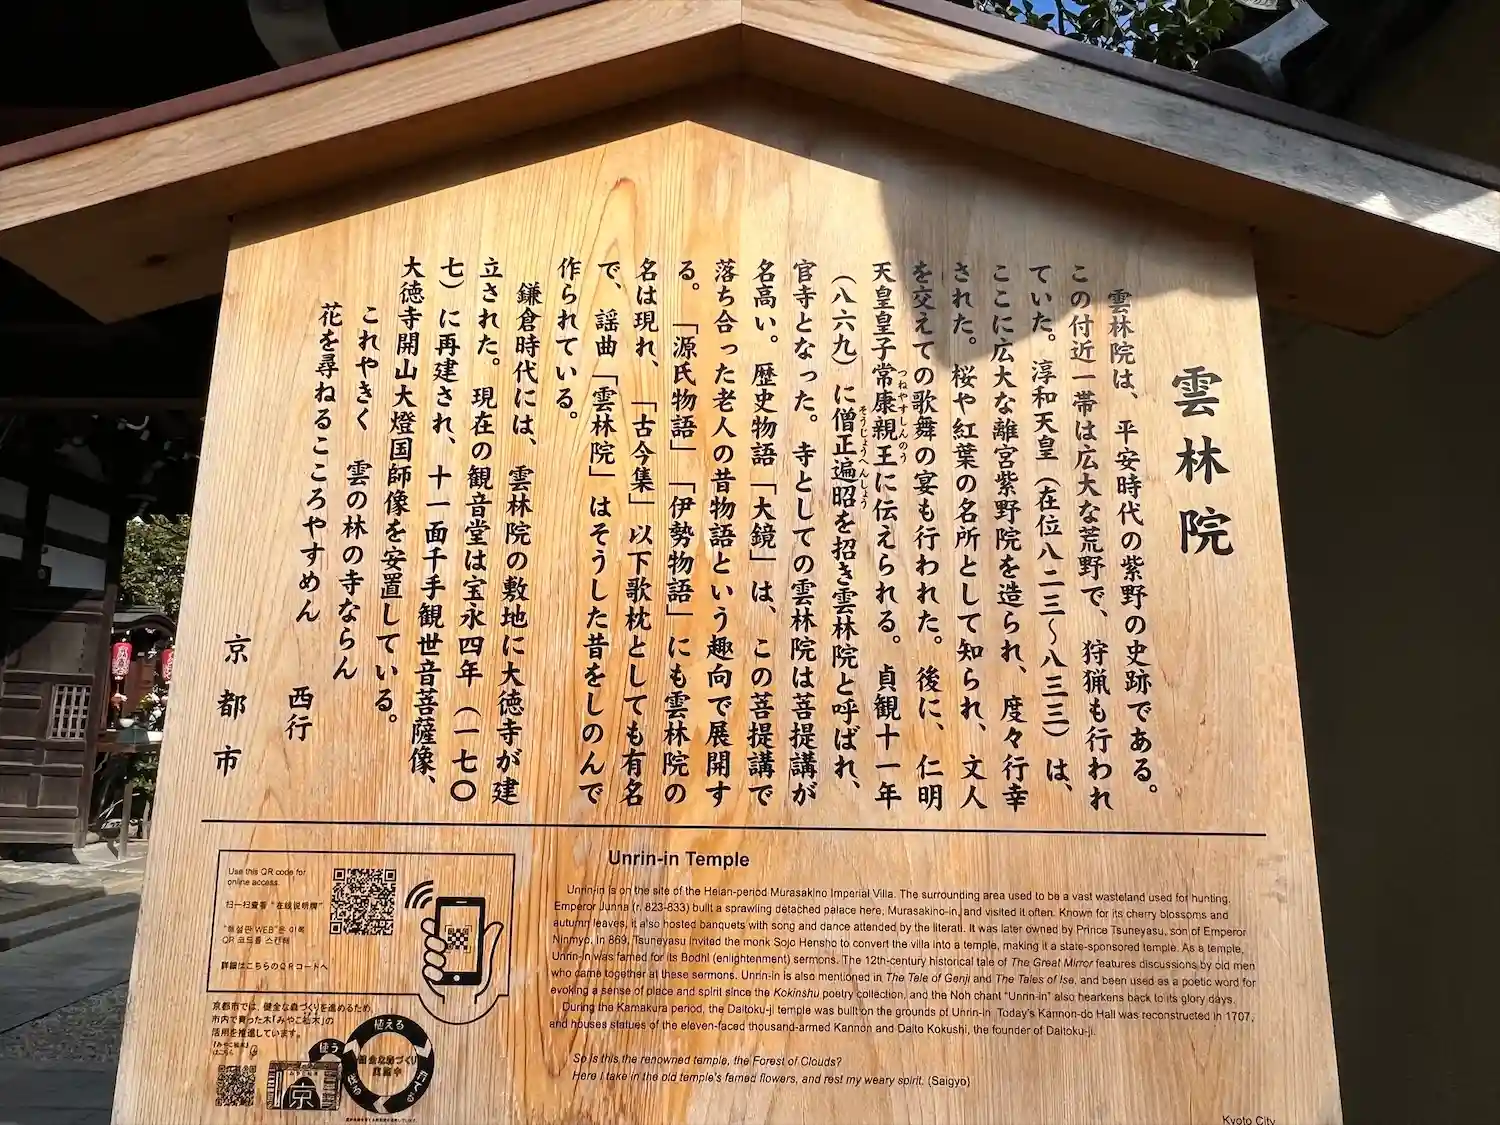 雲林院
雲林院は、平安時代の紫野の史跡である。
この付近一帯は広大な荒野で、狩猟も行われ
ていた。淳和天皇（在位八二三〜八三三）は、
ここに広大な離宮紫野院を造られ、度々行幸
された。桜や紅葉の名所として知られ、文人
を交えての歌舞の宴も行われた。後に、仁明
天皇皇子常康親王に伝えられる。貞観十一年
つねやすしんのう
（八六九）に僧正遍昭を招き雲林院と呼ばれ、
そうじょうへんしょう
官寺となった。寺としての雲林院は菩提講が
名高い。歴史物語「大鏡」は、この菩提講で
落ち合った老人の昔物語という趣向で展開す
る。「源氏物語」「伊勢物語」にも雲林院の
名は現れ、「古今集」以下歌枕としても有名
で、謡曲「雲林院」はそうした昔をしのんで
作られている。
鎌倉時代には、雲林院の敷地に大徳寺が建
立された。現在の観音堂は宝永四年（一七〇
七）に再建され、十一面千手観世音菩薩像、
大徳寺開山大燈国師像を安置している。
これやきく　雲の林の寺ならん
花を尋ねるこころやすめん
西行
京都市
Use this QR code for
online access.
扫一扫查看“在线说明牌”
"해설판 WEB"은 이쪽
QR 코드를 스캔해
詳細はこちらのQRコードへ
京都市では、健全な森づくりを進めるため、
市内で育った木「みやこ杣木」の
活用を推進しています。
「みやこ杣木」
はこちら
植える
使う
育てる
京
Unrin-in Temple
Unrin-in is on the site of the Heian-period Murasakino Imperial Villa. The surrounding area used to be a vast wasteland used for hunting.
Emperor Junna (r. 823-833) built a sprawling detached palace here, Murasakino-in, and visited it often. Known for its cherry blossoms and
autumn leaves, it also hosted banquets with song and dance attended by the literati. It was later owned by Prince Tsuneyasu, son of Emperor
Ninmyo. In 869, Tsuneyasu invited the monk Sojo Hensho to convert the villa into a temple, making it a state-sponsored temple. As a temple,
Unrin-in was famed for its Bodhi (enlightenment) sermons. The 12th-century historical tale of The Great Mirror features discussions by old men
who came together at these sermons. Unrin-in is also mentioned in The Tale of Genji and The Tales of Ise, and been used as a poetic word for
evoking a sense of place and spirit since the Kokinshu poetry collection, and the Noh chant "Unrin-in" also hearkens back to its glory days.
During the Kamakura period, the Daitoku-ji temple was built on the grounds of Unrin-in. Today's Kannon-do Hall was reconstructed in 1707,
and houses statues of the eleven-faced thousand-armed Kannon and Daito Kokushi, the founder of Daitoku-ji.
So is this the renowned temple, the Forest of Clouds?
Here I take in the old temple's famed flowers, and rest my weary spirit. (Saigyo)
Kyoto City